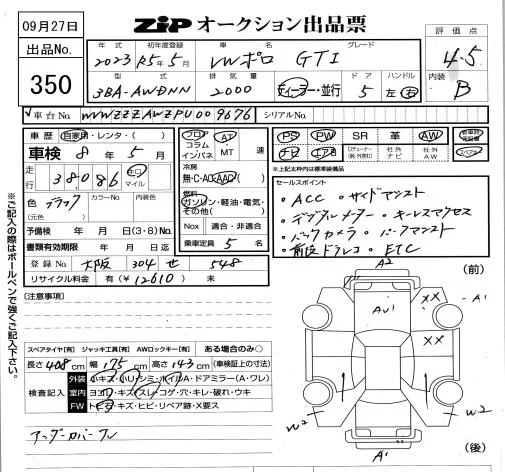 09月27日
ZIP オークション出品票
評価点
4.5
内装
B
出品No.
350
年式 初年度登録 車名 グレード
2023 R5年5月 VWポロ GTI
型式 排気量 ドア ハンドル
3BA-AWDNN 2000 ディーラー・並行 5 左 右
車台No. WVWZZZAWZPU009676 シリアルNo.
車歴 自家用・レンタ・( )
車検 8年 5月
走行 38,086 キロ マイル
色 ブラック カラーNo. 内装色
(元色)
予備検 年 月 日(3・8)No.
書類有効期限 年 月 日迄
登録No. 大阪 304 せ 548
リサイクル料金 有(¥12610) 未
フロア コラム インパネ
AT・MT 速
冷房
無・C・AC・AAC
燃料
ガソリン・軽油・電気・その他( )
Nox 適合・非適合
乗車定員 5 名
PS PW SR 革 AW 新車時保証書
ナビ エアB 社ナビ 社外AW スペアキー
※上記太枠内は標準装備品
セールスポイント
・ACC ・サイドアシスト
・デジタルメーター ・キーレスアクセス
・バックカメラ ・パークアシスト
・前後ドラレコ ・ETC
[注意事項]
スペアタイヤ[有] ジャッキ工具[有] AWロックキー[有] ある場合のみ○
長さ 408cm 幅 175cm 高さ 143cm (車検証上の寸法)
検査記入
外装 小キズ・小ハリ・シミ・ホイルA・ドアミラー(A・ワレ)
室内 ヨゴレ・キズ・スレ・コゲ・穴・キレ・破れ・ウキ
FW トビキズ・キズ・ヒビ・リペア跡・X要ス
アンダーカバーワレ
A2
(前)
AU1
XX
A1
XX
W2
W2
A1
(後)
※ご記入の際はボールペンで強くご記入下さい。